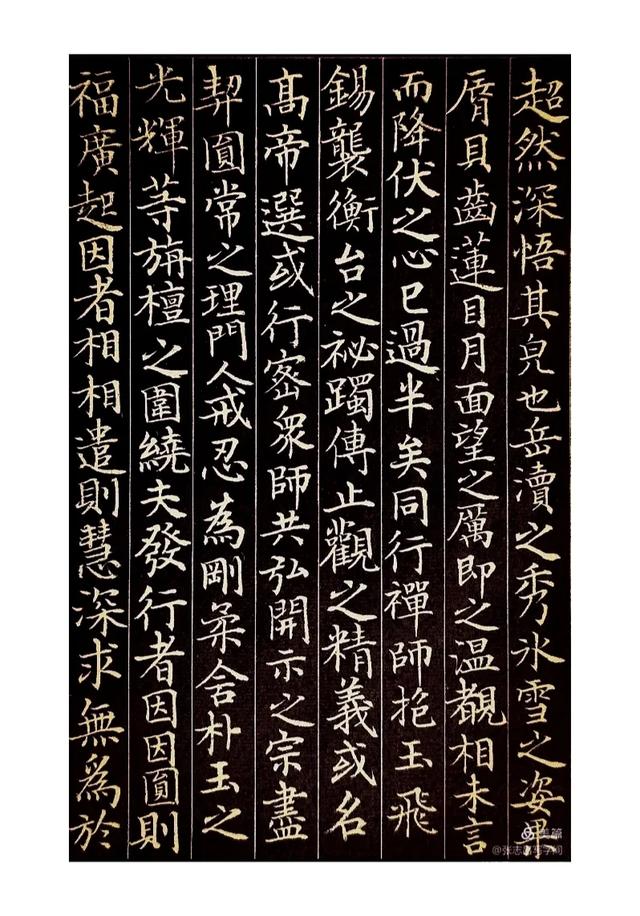 超然深悟其皃也岳瀆之秀氷雪之姿果
脣貝齒蓮目月面望之厲即之温覩相未言
而降伏之心已過半矣同行禪師抱玉飛
錫襲衡台之祕躅傳止觀之精義或名
高帝選或行密眾師共弘開示之宗盡
契圓常之理門人戒忍為剛柔舍朴玉之
光輝等旃檀之圍繞夫發行者因因圓則
福廣起因者相相遣則慧深求無為於
美篇
@张志写字间